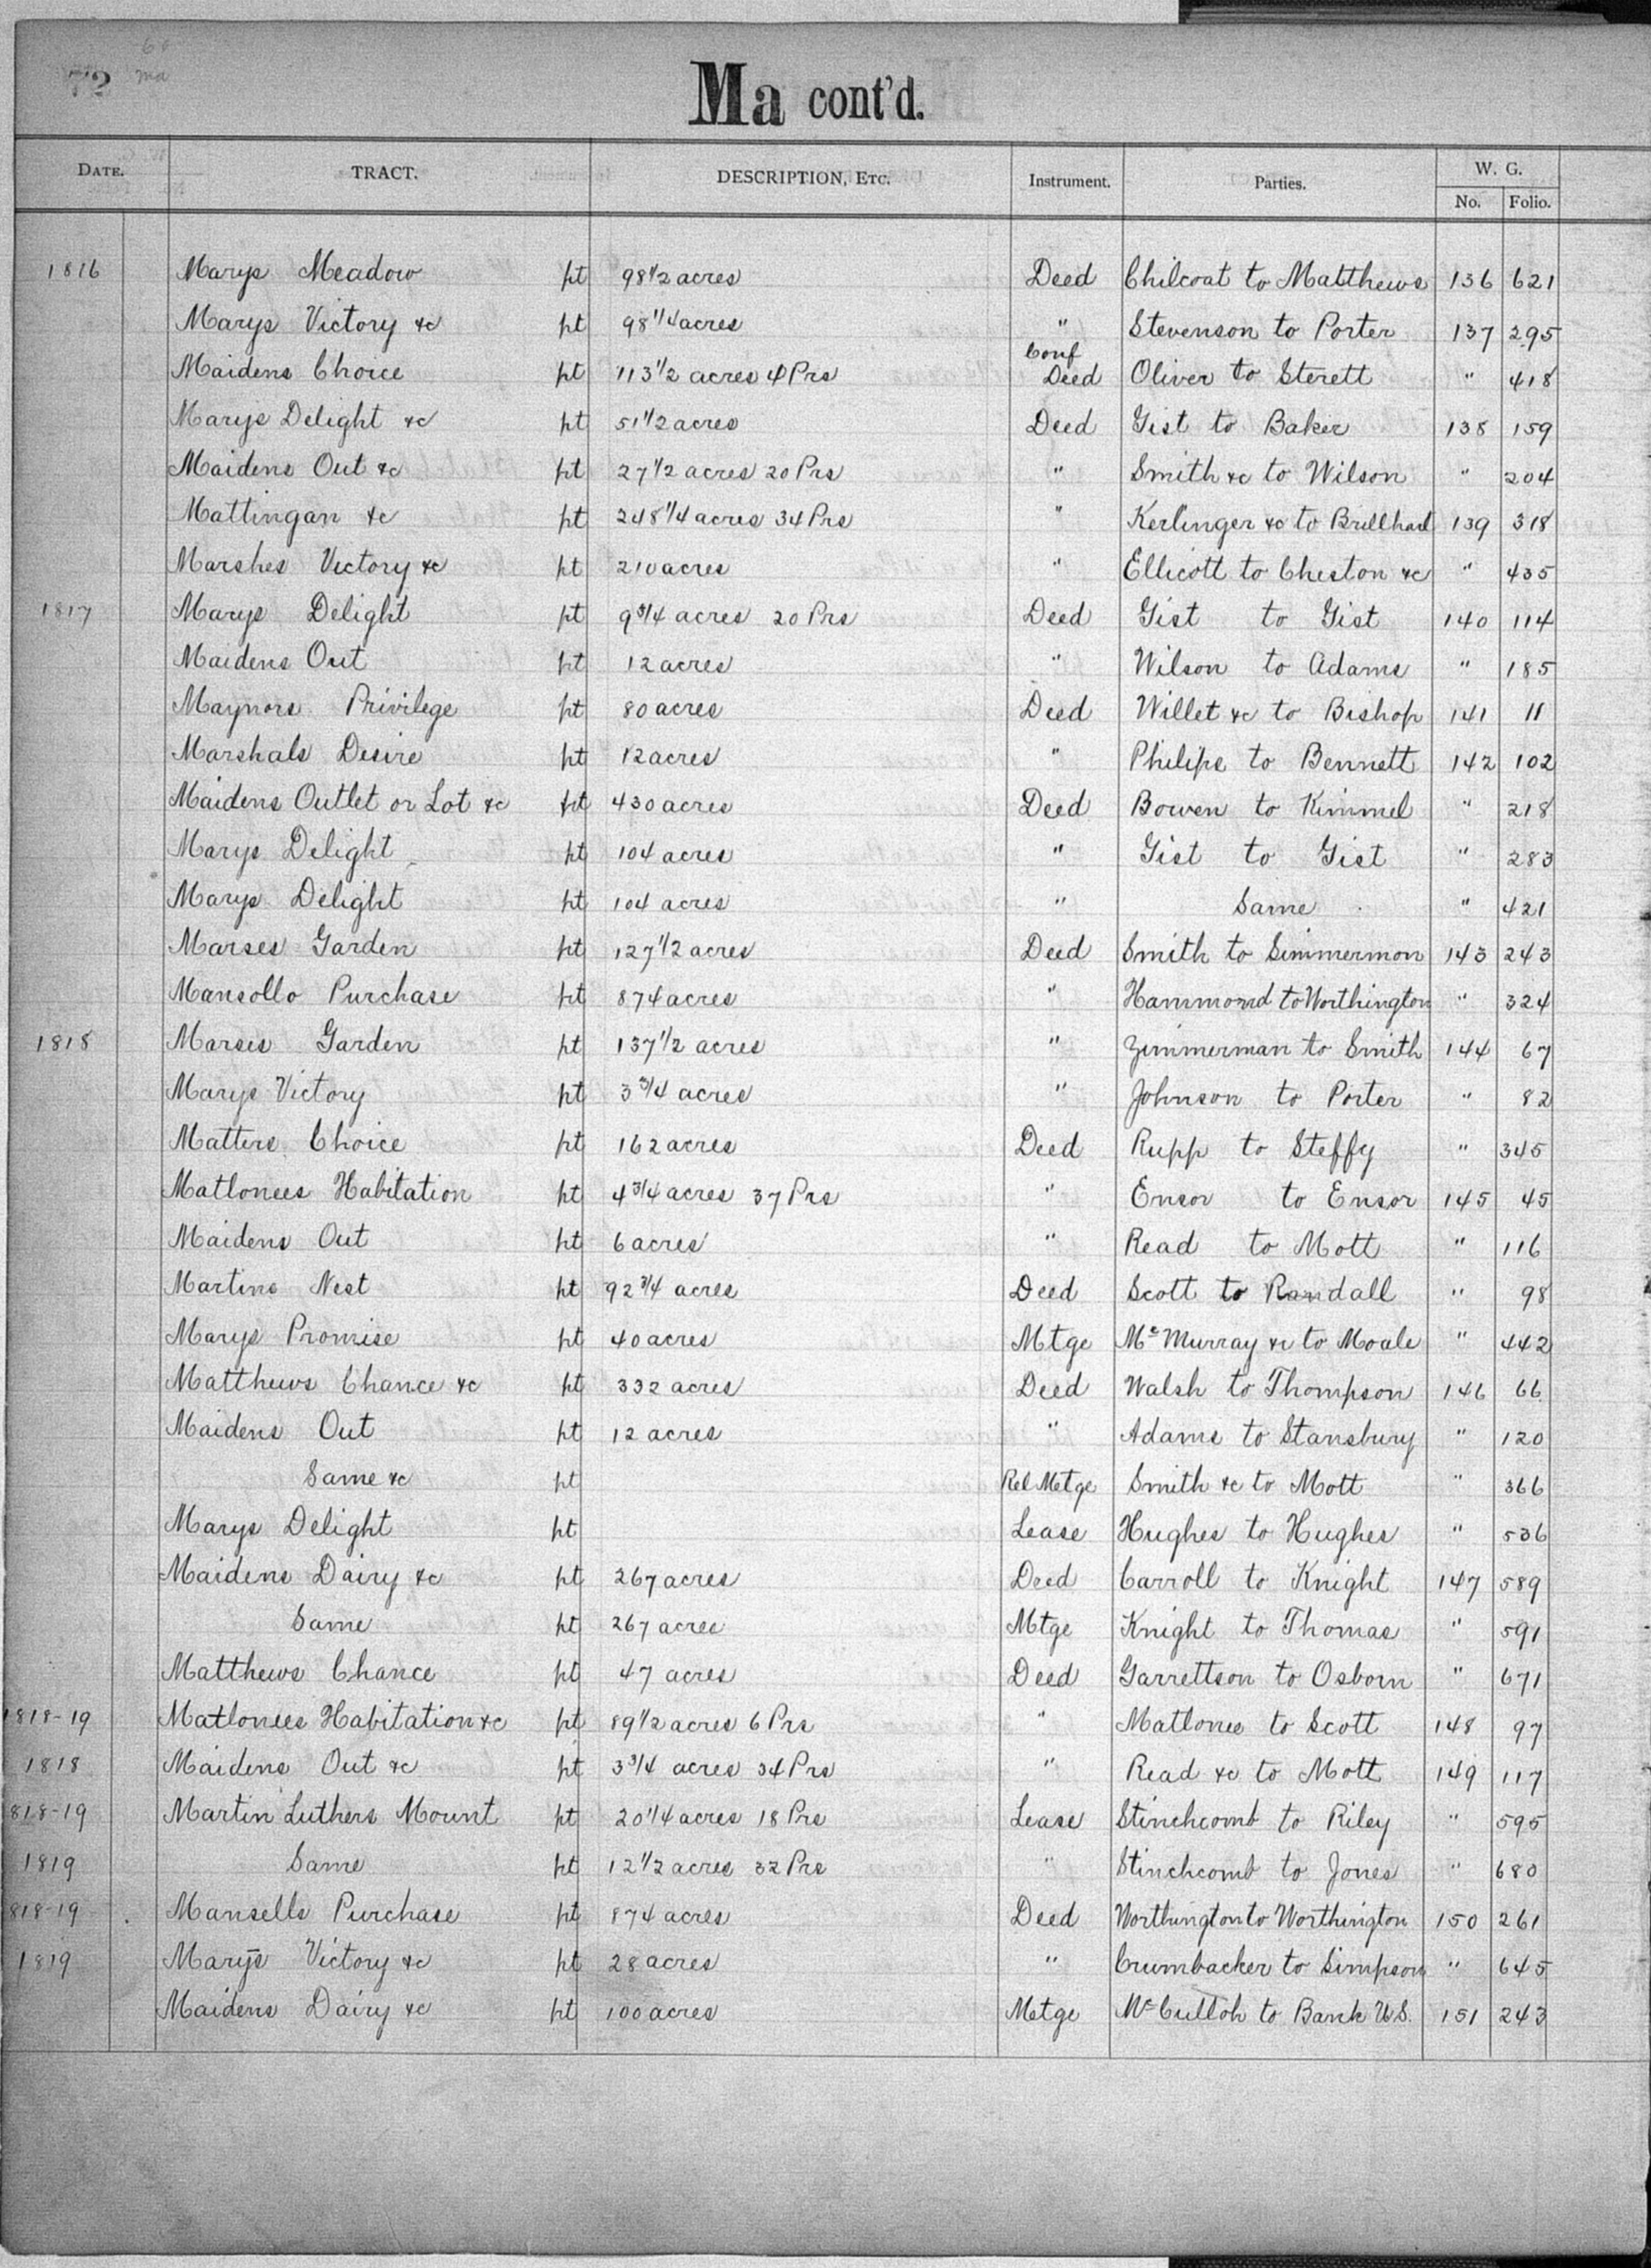 72 60 ma
Ma cont'd.
W. G.
DATE. TRACT. DESCRIPTION, ETC. Instrument. Parties. No. Folio.
1816 Marys Meadow pt 98 1/2 acres Deed Chilcoat to Matthews 136 621
Marys Victory &c pt 98 1/4 acres " Stevenson to Porter 137 295
Maidens Choice pt 113 1/2 acres 4 Prs Conf Deed Oliver to Sterett " 418
Marys Delight &c pt 51 1/2 acres Deed Gist to Baker 138 159
Maidens Out &c pt 27 1/2 acres 20 Prs " Smith &c to Wilson " 204
Mattingan &c pt 248 1/4 acres 34 Prs " Kerlinger &c to Brillhart 139 318
Marshes Victory &c pt 210 acres " Ellicott to Cheston &c " 435
1817 Marys Delight pt 9 3/4 acres 20 Prs Deed Gist to Gist 140 114
Maidens Out pt 12 acres " Wilson to Adams " 185
Maynors Privilege pt 80 acres Deed Willet &c to Bishop 141 11
Marshals Desire pt 12 acres " Philips to Bennett 142 102
Maidens Outlet or Lot &c pt 430 acres Deed Bowen to Kimmel " 218
Marys Delight pt 104 acres " Gist to Gist " 283
Marys Delight pt 104 acres " Same " 421
Marses Garden pt 127 1/2 acres Deed Smith to Simmermon 143 243
Mansollo Purchase pt 874 acres " Hammond to Worthington " 324
1818 Marses Garden pt 137 1/2 acres " Zimmerman to Smith 144 67
Marys Victory pt 3 3/4 acres " Johnson to Porter " 82
Matters Choice pt 162 acres Deed Rupp to Steffy " 345
Matlonees Habitation pt 4 3/4 acres 37 Prs " Ensor to Ensor 145 45
Maidens Out pt 6 acres " Read to Mott " 116
Martins Nest pt 92 3/4 acres Deed Scott to Randall " 98
Marys Promise pt 40 acres Mtge Mc Murray &c to Moale " 442
Matthews Chance &c pt 332 acres Deed Walsh to Thompson 146 66
Maidens Out pt 12 acres " Adams to Stansbury " 120
Same &c pt Rel Mtge Smith &c to Mott " 366
Marys Delight pt Lease Hughes to Hughes " 536
Maidens Dairy &c pt 267 acres Deed Carroll to Knight 147 589
Same pt 267 acres Mtge Knight to Thomas " 591
Matthews Chance pt 47 acres Deed Garrettson to Osborn " 671
1818-19 Matlonees Habitation &c pt 89 1/2 acres 6 Prs " Matlonee to Scott 148 97
1818 Maidens Out &c pt 3 3/4 acres 34 Prs " Read &c to Mott 149 117
818-19 Martin Luthers Mount pt 20 1/4 acres 18 Prs Lease Stinchcomb to Riley " 595
1819 Same pt 12 1/2 acres 32 Prs " Stinchcomb to Jones " 680
818-19 Mansells Purchase pt 874 acres Deed Worthington to Worthington 150 261
1819 Marys Victory &c pt 28 acres " Crumbacker to Simpson " 645
Maidens Dairy &c pt 100 acres Mtge Mc Culloh to Bank U.S. 151 243